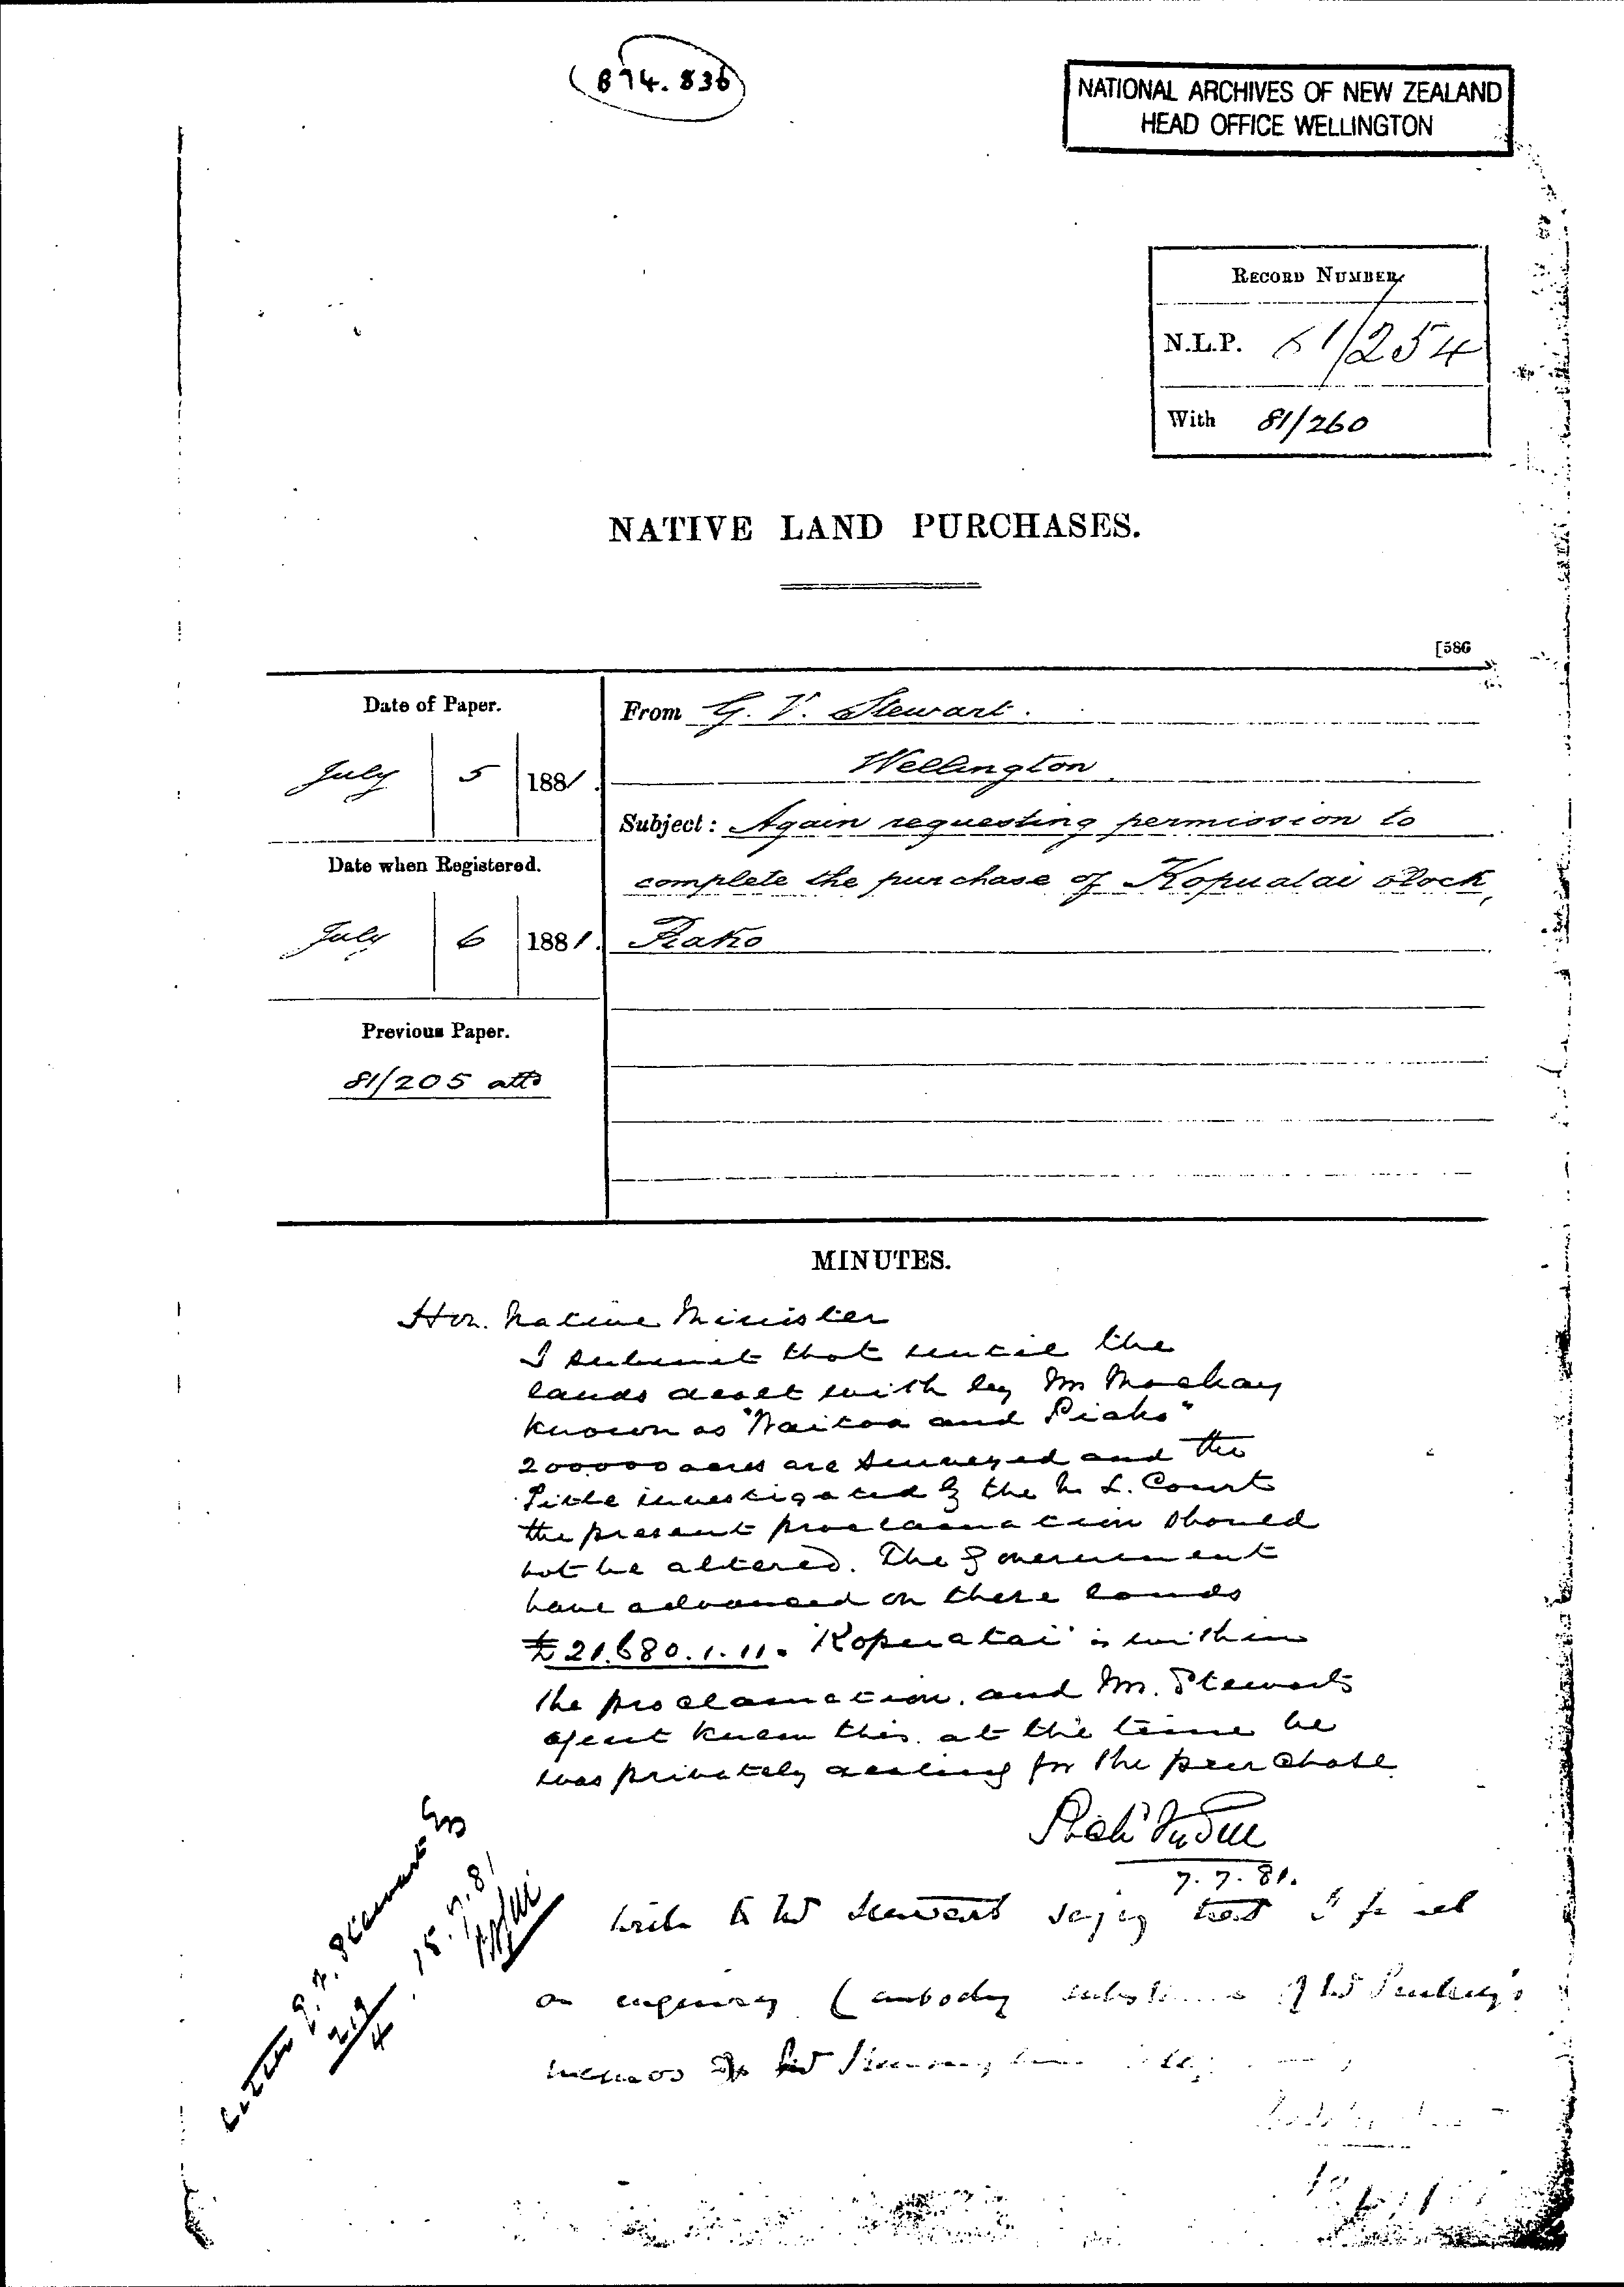 B74.836
NATIONAL ARCHIVES OF NEW ZEALAND
HEAD OFFICE WELLINGTON
RECORD NUMBER
N.L.P. 81/254
With 81/260
NATIVE LAND PURCHASES.
[586
Date of Paper.
July 5 1881.
Date when Registered.
July 6 1881.
Previous Paper.
81/205 attd
From G. V. Stewart.
Wellington
Subject: Again requesting permission to
complete the purchase of Kopuatai block,
Piako
MINUTES.
Hon. Native Minister
I submit that until the
lands dealt with by Mr Mackay
known as "Waitoa and Piako"
200000 acres are surveyed and the
Title investigated by the N. L. Court
the present proclamation should
not be altered. The Government
have advanced on these lands
£21.680.1.11. 'Kopuatai' is within
the proclamation, and Mr. Stewarts
agent knew this at the time he
was privately dealing for the purchase
7.7.81.
Write to Mr Stewart saying that I find
on enquiry (embody substance of Mr
memos
Letter G. V. Stewart Esq
219
4
15.7.81